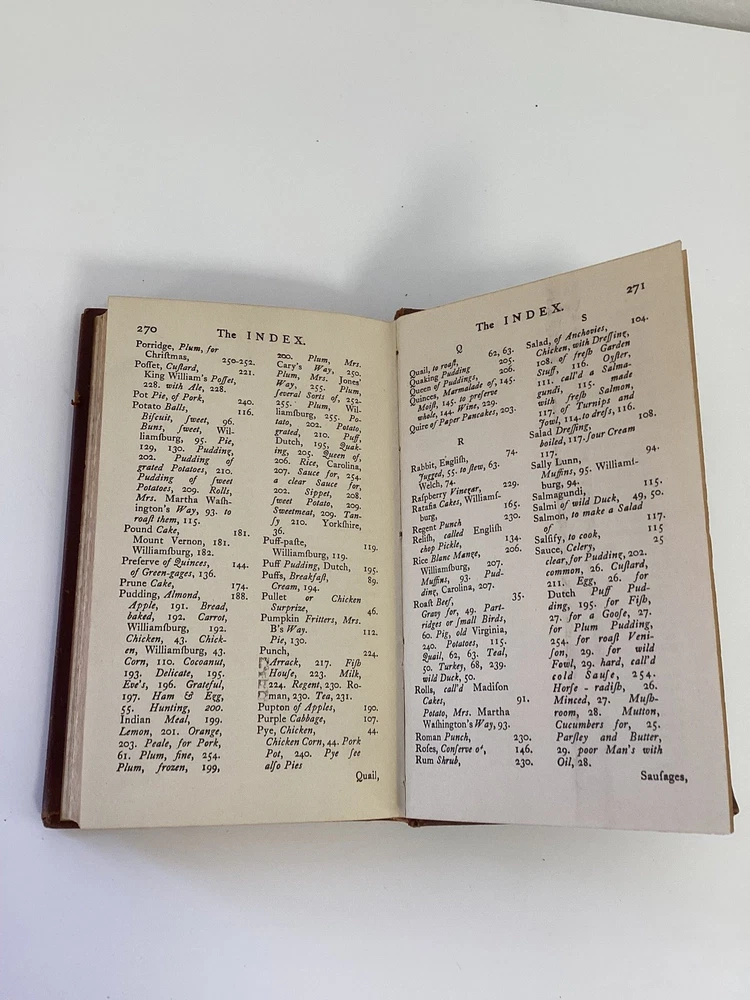 270
The INDEX.
Porridge, Plum, for
Chriſtmas, 250-252.
Poſſet, Cuſtard, 221.
King William's Poſſet,
228. with Ale, 228.
Pot Pie, of Pork, 240.
Potato Balls, 116.
Biſcuit, ſweet, 96.
Buns, ſweet, Wil-
liamſburg, 95. Pie,
129, 130. Pudding,
202. Pudding of
grated Potatoes, 210.
Pudding of ſweet
Potatoes, 209. Rolls,
Mrs. Martha Waſh-
ington's Way, 93. to
roaſt them, 115.
Pound Cake, 181.
Mount Vernon, 181.
Williamſburg, 182.
Preſerve of Quinces, 144.
of Green-gages, 136.
Prune Cake, 174.
Pudding, Almond, 188.
Apple, 191. Bread,
baked, 192. Carrot,
Williamſburg, 192.
Chicken, 43. Chick-
en, Williamſburg, 43.
Corn, 110. Cocoanut,
193. Delicate, 195.
Eve's, 196. Grateful,
197. Ham & Egg,
55. Hunting, 200.
Indian Meal, 199.
Lemon, 201. Orange,
203. Peaſe, for Pork,
61. Plum, fine, 254.
Plum, frozen, 199,
200. Plum, Mrs.
Cary's Way, 250.
Plum, Mrs. Jones'
Way, 255. Plum,
ſeveral Sorts of, 252.
255. Plum, Wil-
liamſburg, 255. Po-
tato, 202. Potato,
grated, 210. Puff,
Dutch, 195, Quak-
ing, 205. Queen of,
206. Rice, Carolina,
207. Sauce for, 254.
a clear Sauce for,
202. Sippet, 208.
ſweet Potato, 209.
Sweetmeat, 209. Tan-
ſy 210. Yorkſhire,
36.
Puff-paſte, 119.
Williamſburg, 119.
Puff Pudding, Dutch, 195.
Puffs, Breakfaſt, 89.
Cream, 194.
Pullet or Chicken
Surprize, 46.
Pumpkin Fritters, Mrs.
B's Way. 112.
Pie, 130.
Punch, 224.
Arrack, 217. Fiſh
Houſe, 223. Milk,
224. Regent, 230. Ro-
man, 230. Tea, 231.
Pupton of Apples, 190.
Purple Cabbage, 107.
Pye, Chicken, 44.
Chicken Corn, 44. Pork
Pot, 240. Pye ſee
alſo Pies
Quail,
The INDEX.
271
Q
Quail, to roaſt, 62, 63.
Quaking Pudding 205.
Queen of Puddings, 206.
Quinces, Marmalade of, 145.
Moiſt, 145. to preſerve
whole, 144. Wine, 229.
Quire of Paper Pancakes, 203.
R
Rabbit, Engliſh, 74.
Jugged, 55. to ſtew, 63.
Welch, 74.
Raſpberry Vinegar, 229.
Ratafia Cakes, Williamſ-
burg, 165.
Regent Punch 230.
Reliſh, called Engliſh
chop Pickle, 134.
Rice Blanc Mange, 206.
Williamſburg, 207.
Muffins, 93. Pud-
ding, Carolina, 207.
Roaſt Beef, 35.
Gravy for, 49. Part-
ridges or ſmall Birds,
60. Pig, old Virginia,
240. Potatoes, 115.
Quail, 62, 63. Teal,
50. Turkey, 68, 239.
wild Duck, 50.
Rolls, call'd Madiſon
Cakes, 91.
Potato, Mrs. Martha
Waſhington's Way, 93.
Roman Punch, 230.
Roſes, Conſerve of, 146.
Rum Shrub, 230.
S
Salad, of Anchovies, 104.
Chicken, with Dreſſing,
108. of freſh Garden
Stuff, 116. Oyſter,
111. call'd a Salma-
gundi, 115. made
with freſh Salmon,
117. of Turnips and
Fowl, 114. to dreſs, 116.
Salad Dreſſing, 108.
boiled, 117. ſour Cream
117.
Sally Lunn, 94.
Muffins, 95. Williamſ-
burg, 94.
Salmagundi, 115.
Salmi of wild Duck, 49, 50.
Salmon, to make a Salad
of 117.
Salſify, to cook, 115
Sauce, Celery, 25
clear, for Pudding, 202.
common, 26. Cuſtard,
211. Egg, 26. for
Dutch Puff Pud-
ding, 195. for Fiſh,
27. for a Gooſe, 27.
for Plum Pudding,
254. for roaſt Veni-
ſon, 29. for wild
Fowl, 29. hard, call'd
cold Sauſe, 254.
Horſe-radiſh, 26.
Minced, 27. Muſh-
room, 28. Mutton,
Cucumbers for, 25.
Parſley and Butter,
29. poor Man's with
Oil, 28.
Sauſages,